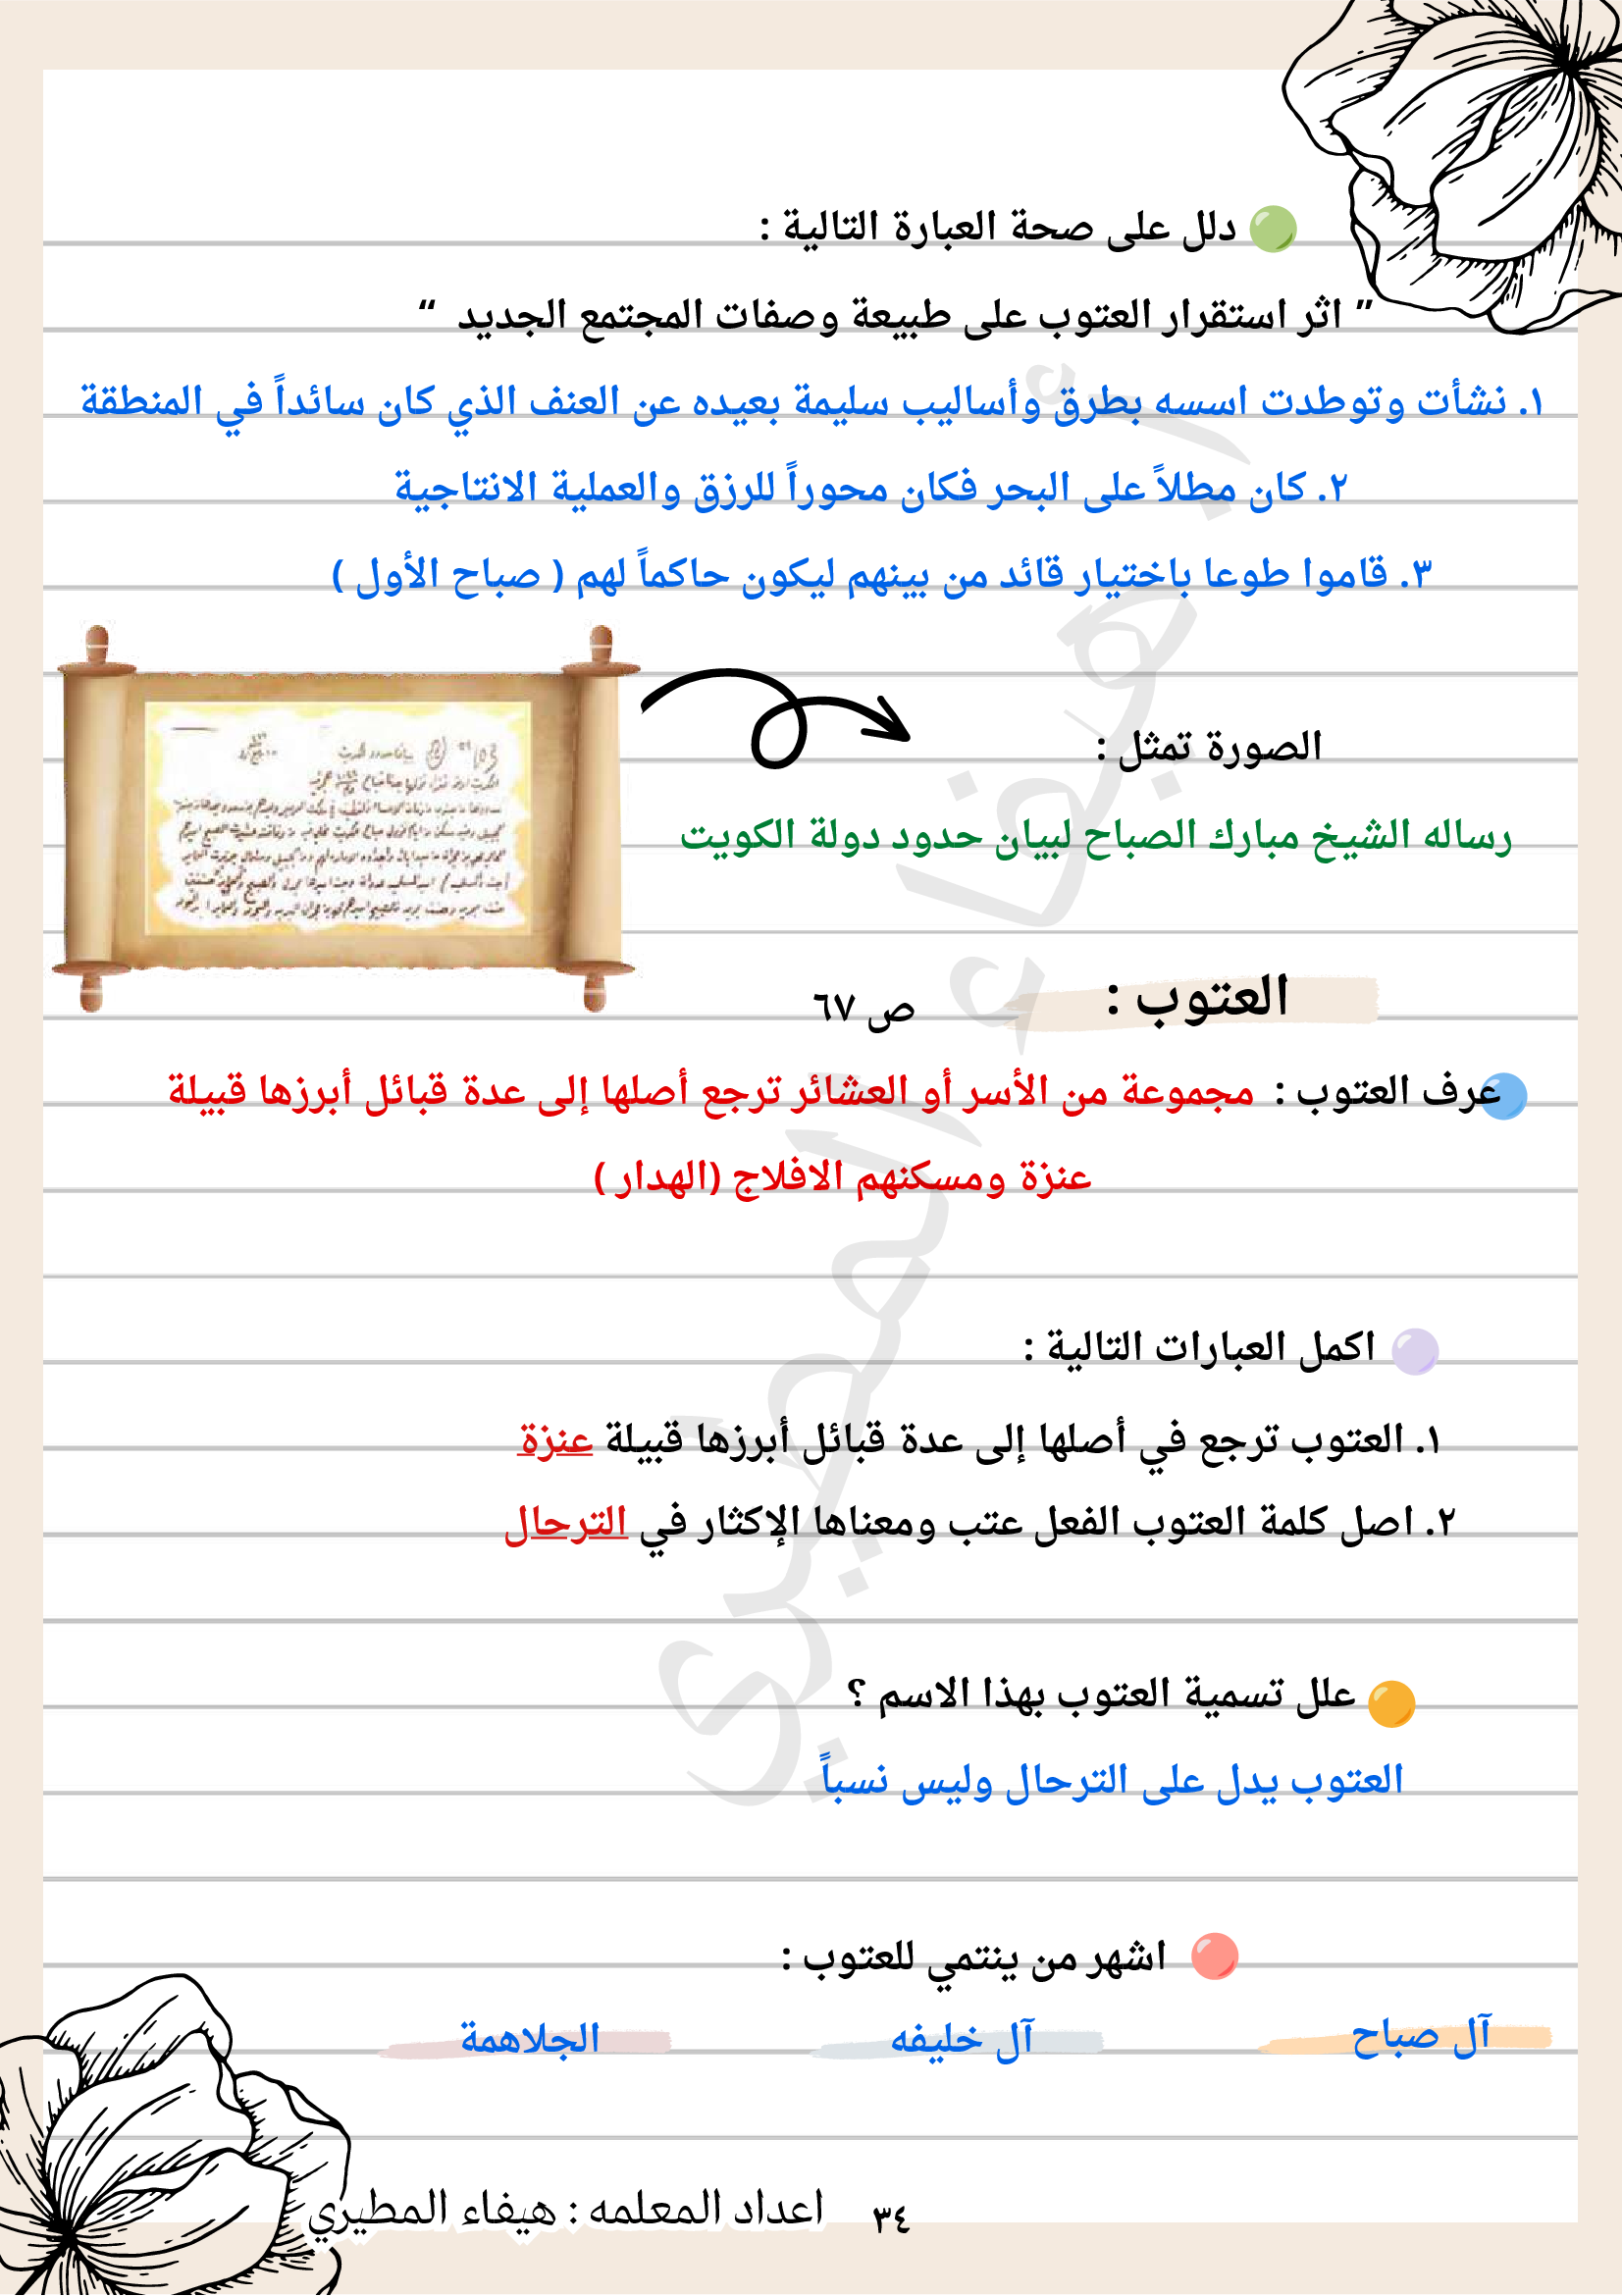 دلل على صحة العبارة التالية :
” اثر استقرار العتوب على طبيعة وصفات المجتمع الجديد “
١. نشأت وتوطدت اسسه بطرق وأساليب سليمة بعيده عن العنف الذي كان سائداً في المنطقة
٢. كان مطلاً على البحر فكان محوراً للرزق والعملية الانتاجية
٣. قاموا طوعا باختيار قائد من بينهم ليكون حاكماً لهم ( صباح الأول )
الصورة تمثل :
رساله الشيخ مبارك الصباح لبيان حدود دولة الكويت
العتوب : ص ٦٧
عرف العتوب : مجموعة من الأسر أو العشائر ترجع أصلها إلى عدة قبائل أبرزها قبيلة
عنزة ومسكنهم الافلاج (الهدار )
اكمل العبارات التالية :
١. العتوب ترجع في أصلها إلى عدة قبائل أبرزها قبيلة عنزة
٢. اصل كلمة العتوب الفعل عتب ومعناها الإكثار في الترحال
علل تسمية العتوب بهذا الاسم ؟
العتوب يدل على الترحال وليس نسباً
اشهر من ينتمي للعتوب :
آل صباح آل خليفه الجلاهمة
٣٤ اعداد المعلمه : هيفاء المطيري